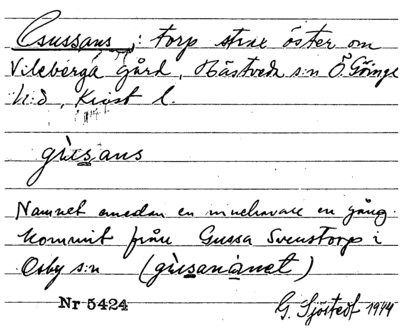 Gussans: torp strax öster om
Vileberga gård, Hästveda s:n Ö. Göinge
h:d, Krist l.
gùsans
Namnet emedan en innehavare en gång
kommit från Gussa Svenstorp i
Osby s:n (gùsanànet)
Nr 5424
G. Sjöstedt 1944